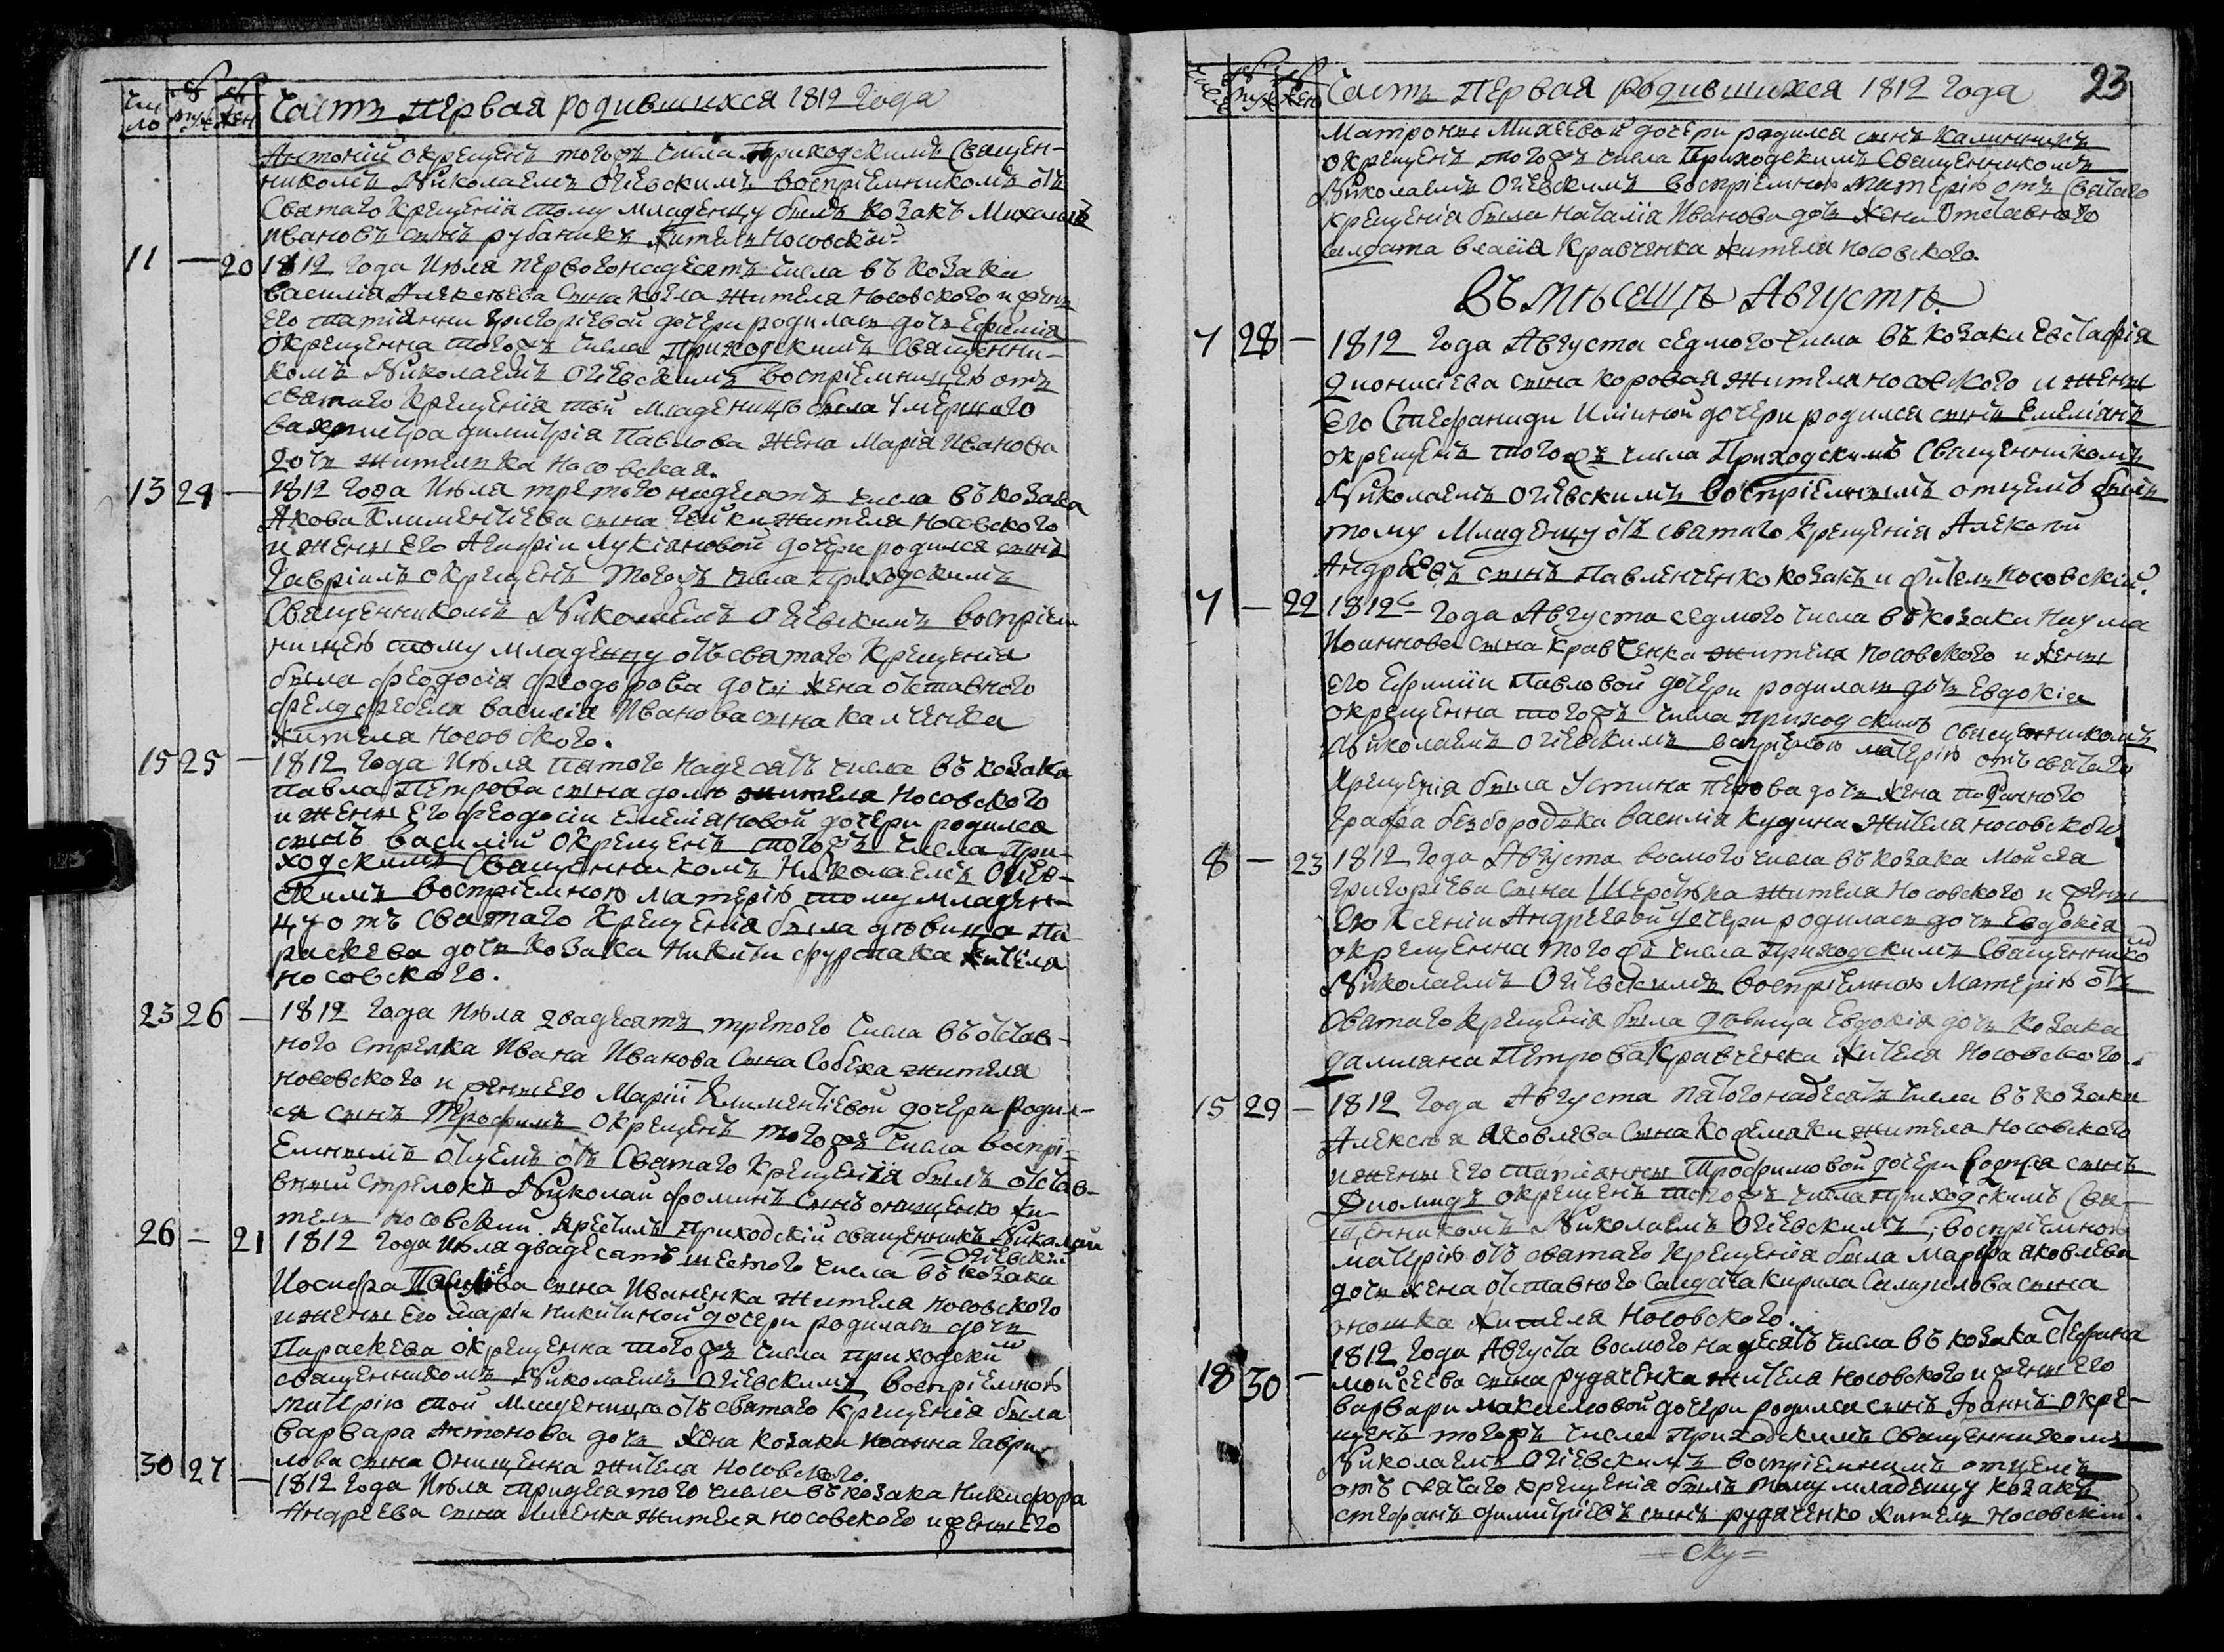 Чи
сло
муж
жен
Часть первая родившихся 1812 года
Антоній окрещенъ тогожъ числа Приходскимъ Священ-
никомъ Николаемъ Огіевскимъ воспріемникомъ отъ
Святаго Крещенія тому младенцу былъ козакъ Михаилъ
Ивановъ сынъ рубаникъ житель Носовскій
11 — 20 1812 года Июля первогонадесять числа въ козака
василія Алексѣева сына Кѣла жителя Носовского и жены
его татіянны григоріевой дочери родилась дочь Ефимія
окрещенна тогожъ числа Приходскимъ Священни-
комъ Николаемъ Огіевскимъ воспріемницею отъ
святаго Крещенія той младеницѣ была умершаго
вахмистра димитрія Павлова жена Марія Иванова
дочь жителька Носовская.
13 24 — 1812 года Июля третогонадесять числа въ козака
Якова Климентіева сына Чейки жителя Носовского
и жены его Агафіи Лукіяновой дочери родился сынъ
Гавріилъ окрещенъ тогожъ числа приходскимъ
Священникомъ Николаемъ Огіевскимъ воспріем
ницею тому младенцу отъ святаго Крещенія
была феодосія феодорова дочь жена отставного
фелдфебеля василія Иванова сына калченка
жителя Носовского.
15 25 — 1812 года Июля пятого надесять числа въ козака
павла Петрова сына долю жителя Носовского
и жены его феодосіи Емеліяновой дочери родился
сынъ василій окрещенъ тогожъ числа При-
ходскимъ Священникомъ Николаемъ Огіев-
скимъ воспріемною матерію тому младен-
цу отъ святаго Крещенія была дѣвица Па
раскева дочь козака Никити фурсака жителя
носовского.
23 26 — 1812 года Июля двадесять третого числа въ отстав-
ного стрелка Ивана Иванова сына Собека жителя
носовского и жены его Маріи Климентіевой дочери родил-
ся сынъ Трофимъ окрещенъ тогожъ числа воспрі-
емнымъ отцемъ отъ Святаго Крещенія былъ отстав-
вный стрелокъ Николай фоминъ сынъ онищенко жи-
тель носовскій крестилъ приходскій священникъ Николай
Огіевскій
26 — 21 1812 года Июля двадесять шестого числа въ козака
Иосифа сына Иваненка жителя Носовского
и жены его Маріи Никитиной дочери родилась дочь
Параскева окрещенна тогожъ числа приходски
мъ
священникомъ Николаемъ Огіевскимъ воспріемною
матерію той младеницѣ отъ святаго Крещенія была
варвара Антонова дочь жена козака Иоанна Гаври
лова сына Онищенка жителя Носовского.
30 27 — 1812 года Июля тридесятого числа въ козака Никифора
Андреева сына Лисенка жителя носовского и жены его
23
муж
жен
Часть Первая родившихся 1812 года
Матроны Михеевой дочери родился сынъ Калинникъ
окрещенъ тогожъ числа Приходскимъ Священникомъ
Николаемъ Огіевскимъ воспріемною матерію отъ Святаго
крещенія была Наталія Иванова дочь жена Отставного
салдата власія Кравченка жителя носовского.
Въ мѣсецѣ Августѣ.
7 28 — 1812 года Августа седмого числа въ козака Евстафія
діонисіева сына коровая жителя носовского и жены
его Стефаниди Иліиной дочери родился сынъ Емеліянъ
окрещенъ тогожъ числа Приходскимъ Священникомъ
Николаемъ Огіевскимъ воспріемнымъ отцемъ былъ
тому Младенцу отъ святаго Крещенія Алексѣй
Андреевъ сынъ Павленченко козакъ и житель Носовскій.
7 — 22 1812 года Августа седмого числа въ козака Наума
Иоаннова сына кравченка жителя носовского и жены
его Ефиміи Павловой дочери родилась дочь Евдокія
окрещенна тогожъ числа приходскимъ священникомъ
Николаемъ огіевскимъ воспріемною матерію отъ святаго
Крещенія была Устина Петрова дочь жена подданного
Графа безбородька василія кудина жителя носовского
8 — 23 1812 года Августа восмого числа въ козака Мойсея
григоріева сына Шерстюка жителя Носовского и жены
его Ксеніи Андреевой дочери родилась дочь Евдокія
окрещенна тогожъ числа Приходскимъ Священнико
мъ
Николаемъ Огіевскимъ воспріемною Матерію отъ
Святаго Крещенія была дѣвица Евдокія дочь козака
даміяна Петрова Кравченка жителя Носовского.
15 29 — 1812 года Августа пятогонадесять числа въ козака
Алексѣя яковлева сына Кожемяки жителя Носовского
и жены его татіянны Трофимовой дочери родился сынъ
Диомидъ окрещенъ тогожъ числа приходскимъ Свя-
щенникомъ Николаемъ Огіевскимъ; воспріемною
матерію отъ святаго крещенія была Марфа яковлева
дочь жена отставного Салдата кирила Самуилова сына
оношка жителя Носовского.
18 30 — 1812 года Августа восмого надесять числа въ козака Стефана
мойсеева сына рудяченка жителя Носовского и жены его
варвари максимовой дочери родился сынъ Іоаннъ окре-
щенъ тогожъ числа Приходскимъ священникомъ
Николаемъ Огіевскимъ воспріемнымъ отцемъ
отъ святаго крещенія былъ тому младенцу козакъ
стефанъ димитріевъ сынъ рудяченко житель Носовскій.